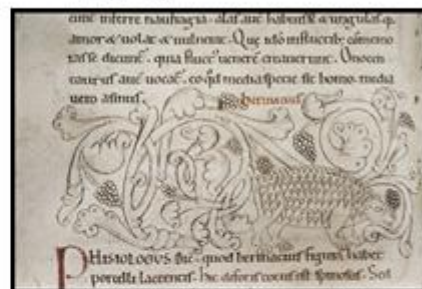 cune inferre naufragia. alas aut habuisse & ungulas q
amor & volat & vulnerat. Que ideo influctib; commo
rasse dicunt. quia fluct venere creaverunt. Onocen
taurus aut vocat. eo qd media specie sit homo. media
vero asinus. herinatius
PHISIOLOGUS dic. quod herinacius figura habet
porcelli lactentis. hic deforis totus est spinosus. Sed